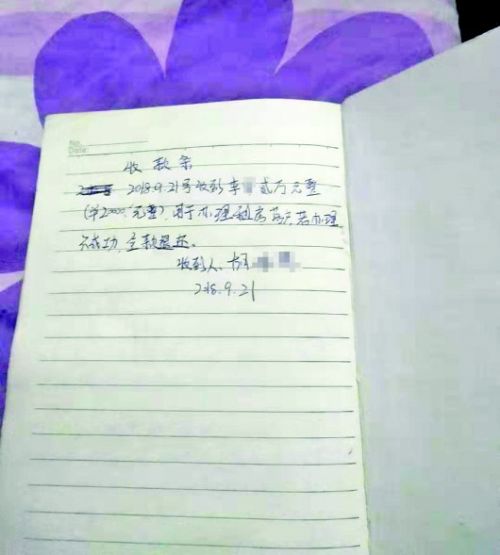 No.
Date.
收款条
2018.9.21号收到李 贰万元整
(¥20000元整),用于办理 房 若办理
不成功,全款退还。
收到人:胡
2018.9.21